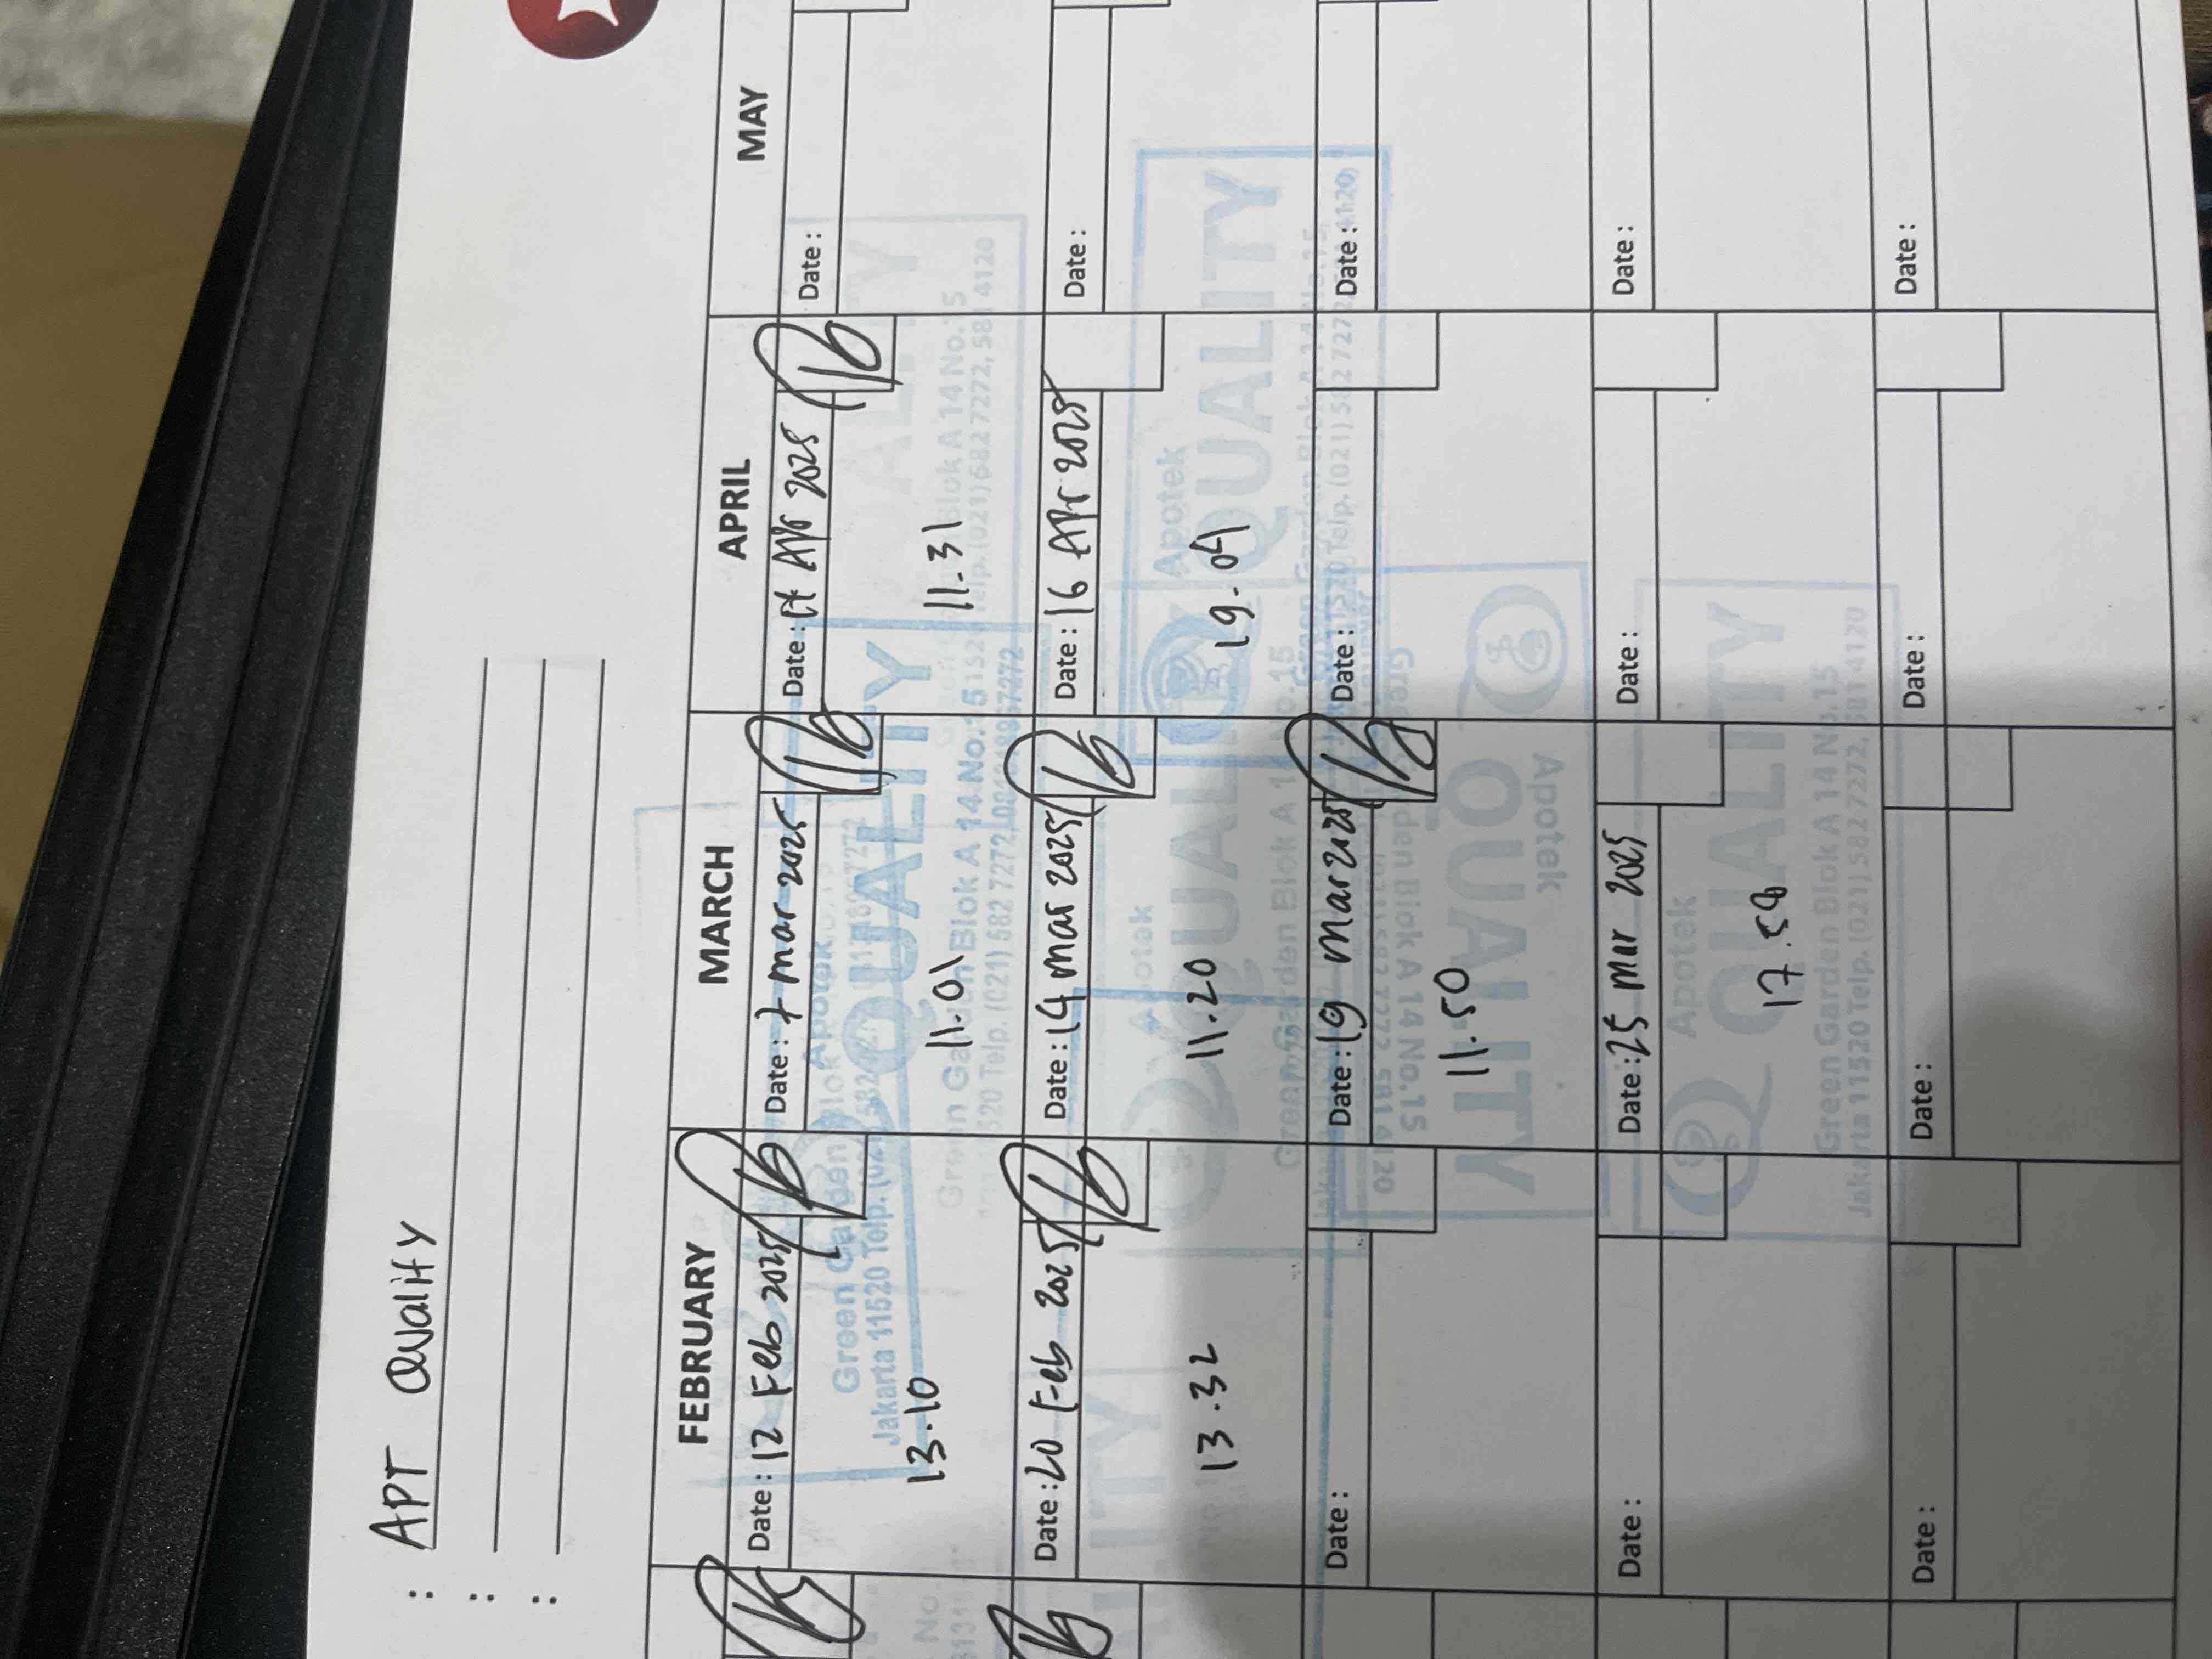 : APT Quality
:
:
FEBRUARY MARCH APRIL MAY
Date : 12 Feb 2025 Date : 7 mar 2025 Date : Apr 2025 Date :
13.10 11.01 11.31
Date : 20 Feb 2025 Date : 14 mar 2025 Date : 16 Apr 2025 Date :
13.32 11.20 19.04
Date : Date : 19 mar 2025 Date : Date :
11.50
Date : Date : 25 mar 2025 Date : Date :
17.58
Date : Date : Date : Date :
Apotek
QUALITY
Green Garden Blok A 14 No.15
Jakarta 11520 Telp. (021) 582 7272, 581 4120
Apotek
QUALITY